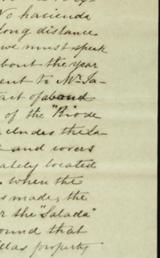 No hacienda
long distance
we must speak
about the year
ent to Mr. Sa-
act of abond
of the "Rio de
cludes the La-
and
ately located
when the
s made, the
r the "Salada"
ound that
llas property